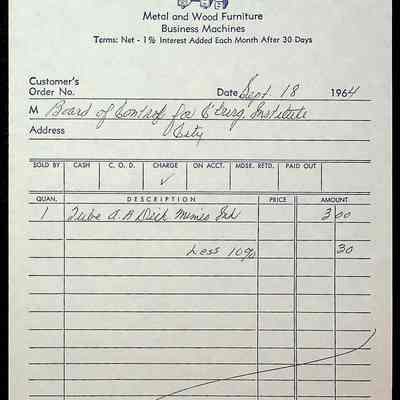 Metal and Wood Furniture
Business Machines
Terms: Net - 1% Interest Added Each Month After 30 Days
Customer's
Order No. Date Sept. 18 1964
M Board of Control for Institute
Address City
SOLD BY CASH C. O. D. CHARGE ON ACCT. MDSE. RETD. PAID OUT
✓
QUAN. DESCRIPTION PRICE AMOUNT
1 Tube A.B. Dick Mimeo Ink 3 00
Less 10% 30